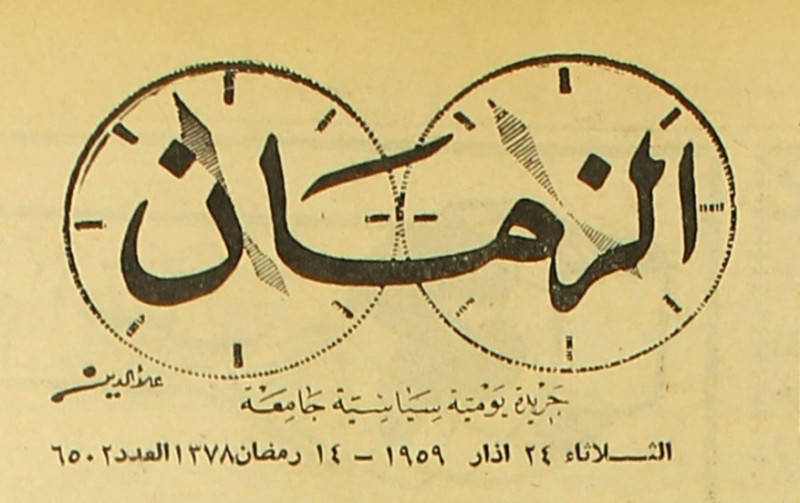 الزمان
علاء الدين
جريدة يومية سياسية جامعة
الثلاثاء ٢٤ اذار ١٩٥٩ – ١٤ رمضان ١٣٧٨ العدد ٦٥٠٢